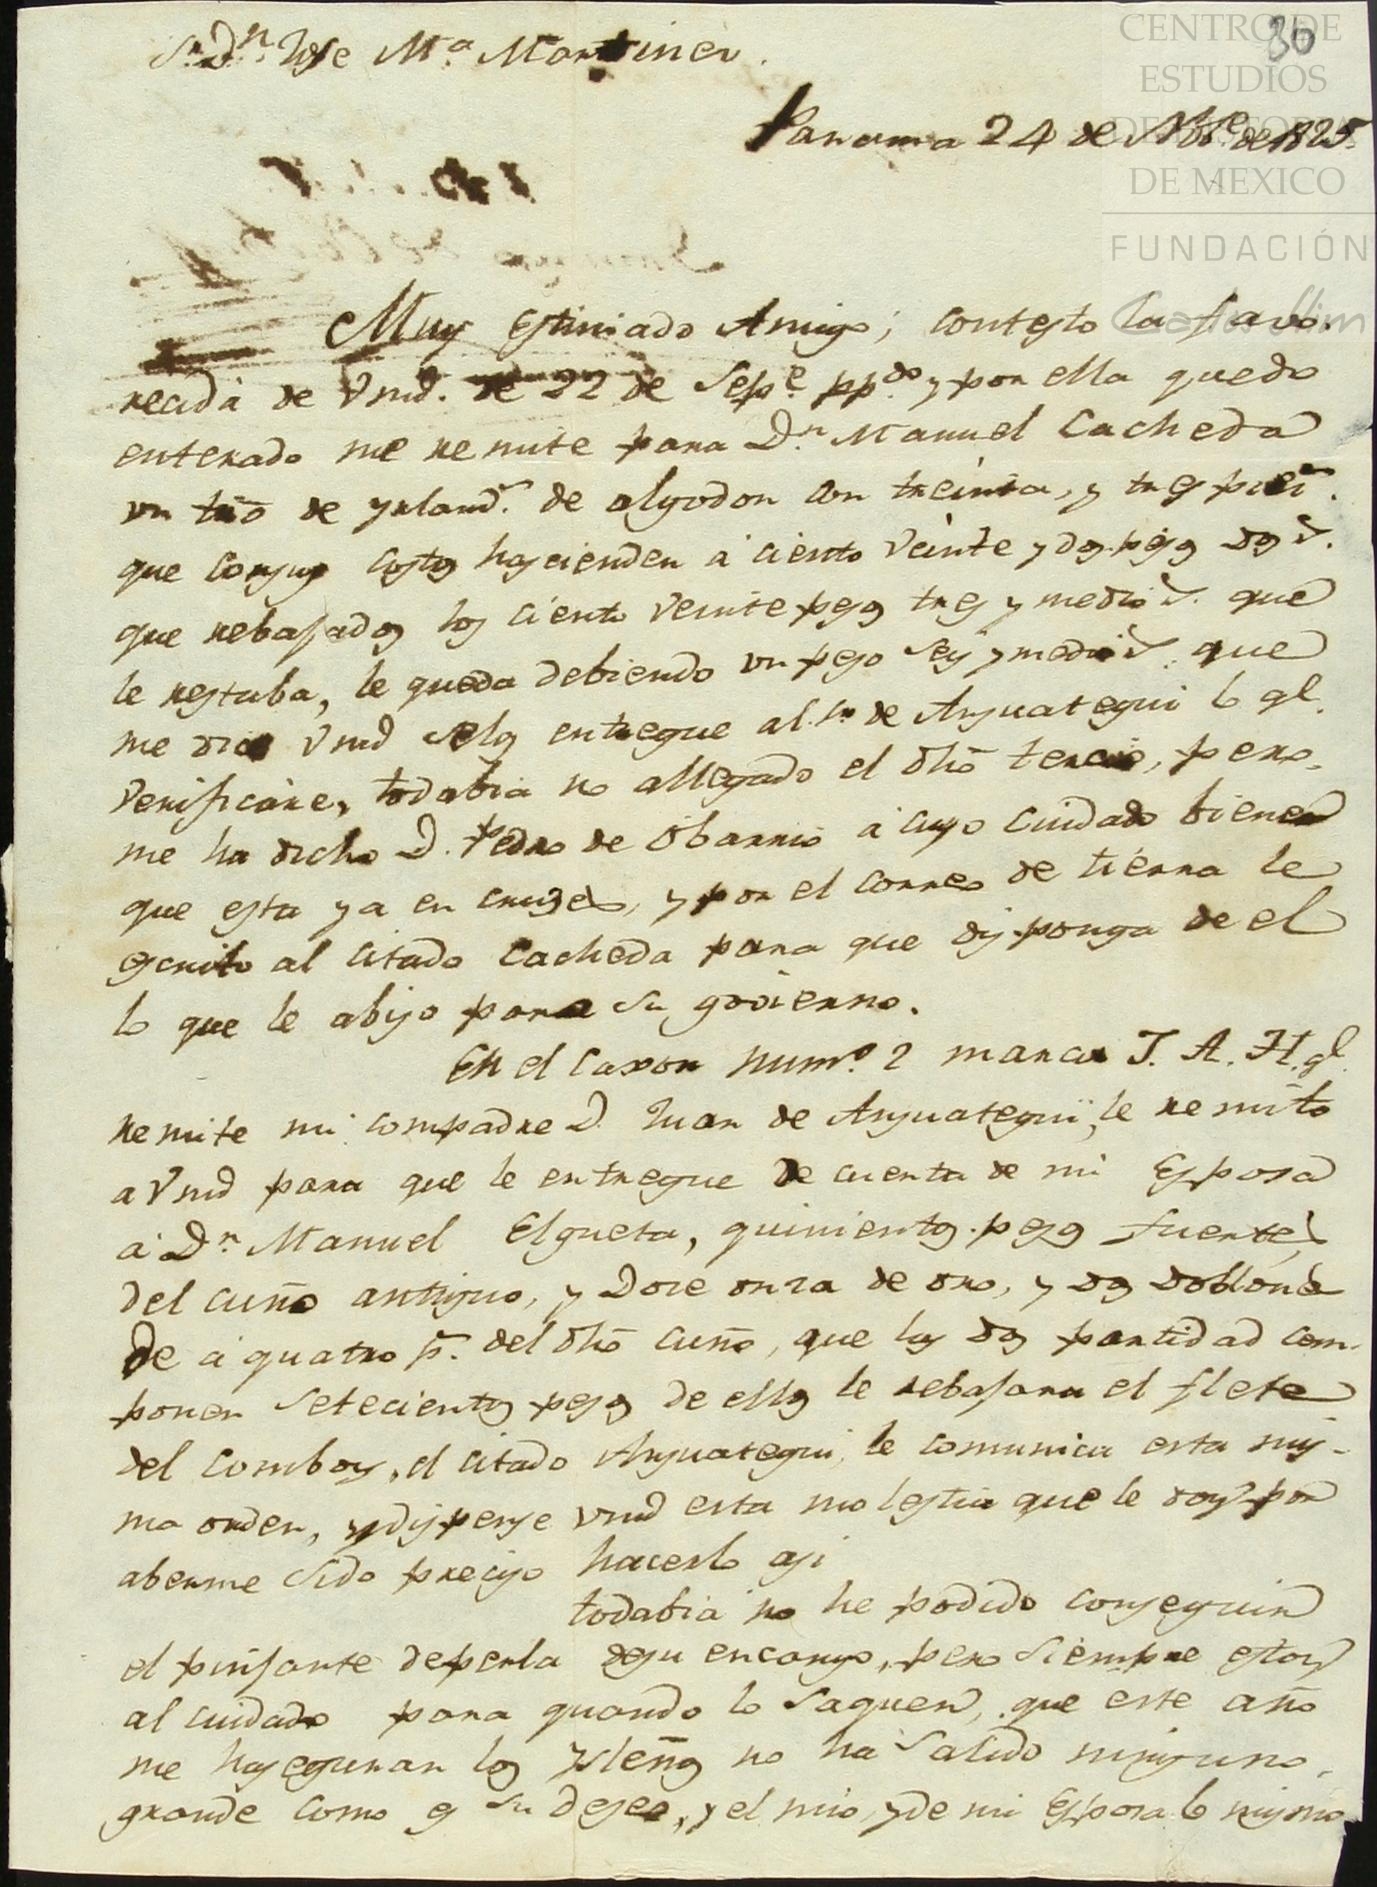 30
CENTRO DE
ESTUDIOS
DE HISTORIA
DE MEXICO
FUNDACIÓN
Carlos Slim
Sr. Dn. Jose Ma. Martinez.
Panama 24 de Nbre. de 1825.
Muy Estimado Amigo; contesto la favo-
recida de Vmd. de 22 de Sepe. ppdo. y por ella quedo
enterado me remite para Dn. Manuel Cacheda
un tño de yrland.s de algodon con treinta, y tres piezs.
que consus costos hascienden á ciento veinte y dos pesos dos r.
que rebasados los ciento veinte pesos tres y medio r. que
le restaba, le queda debiendo un peso seis y medio r. que
me dice Vmd selos entregue al Sr. de Anzuategui lo ql.
verificare, todabia no allegado el dhõ tercio, pero,
me ha dicho D. Pedro de Obarrio á cuyo cuidado biene
que esta ya en cruzes, y por el correo de tierra le
escrito al citado Cacheda para que disponga de el
lo que le abiso para su govierno.
En el Caxon Numo. 2 marca J. A. H. ql.
remite mi compadre D. Juan de Anzuategui, le remito
a Vmd para que le entregue de cuenta de mi Esposa
á Dn. Manuel Elgueta, quinientos pesos fuertes
del cuño antiguo, y Doce onza de oro, y dos doblones
de á quatro ps. del dhõ cuño, que las dos partidad com-
ponen setecientos pesos de ellos le rebasara el flete
del Comboy, el citado Anzuategui, le comunica esta mis-
ma orden, y dispense Vmd esta molestia que le doy por
aberme sido preciso hacerlo asi
todabia no he podido conseguir
el pinsante deperla desu encargo, pero siempre estoy
al cuidado para quando lo saquen, que este año
me haseguran los Ysleños no ha salido ninguno,
grande como es su deseo, y el mio, y de mi Esposa lo mismo